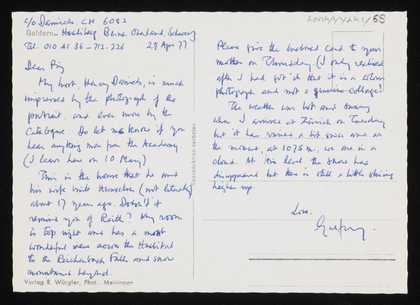 c/o Daniels, CH 6082
Goldern, Hasliberg, Berne Oberland, Schweiz
Tel. 010 41 36 – 712-226 28 Apr 77
Dear Roy
My host, Henry Daniels, is much
impressed by the photograph of the
portrait, and even more by the
Catalogue. Do let us know if you
hear anything more from the Academy
(I leave here on 10 May)
This is the house that he and
his wife built themselves (not literally)
about 17 years ago. Doesn't it
remind you of Reith? My room
is top right and has a most
wonderful view across the Haslital
to the Reichenbach Falls and snow
mountains beyond.
Verlag B. Würgler, Phot., Meiringen
Please give the enclosed card to your
mother on Thursday (I only realised
after I had got it that it is a silver
photograph and not a genuine collage!
The weather was hot and sunny
when I arrived at Zürich on Tuesday
but it has rained a bit since and at
the moment, at 1075 m, we are in a
cloud. At this level the snow has
disappeared but there is still a little skiing
higher up.
Love,
Godfrey